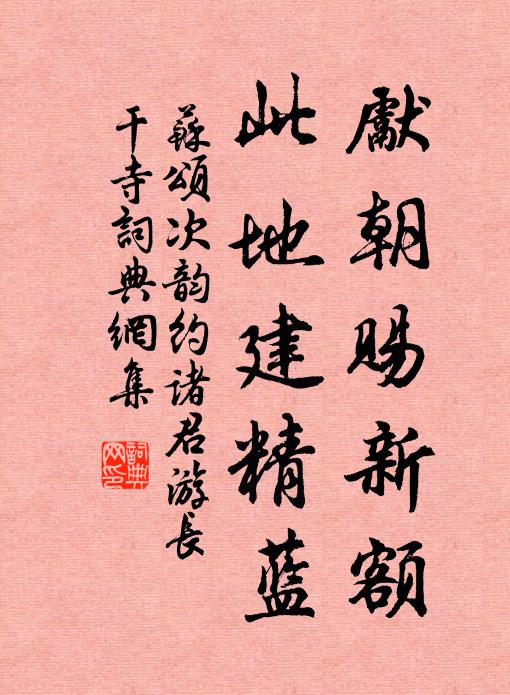 獻朝賜新額
此地建精藍
蘇頌次韵約諸君游長
干寺詞典網集
詞典
网印